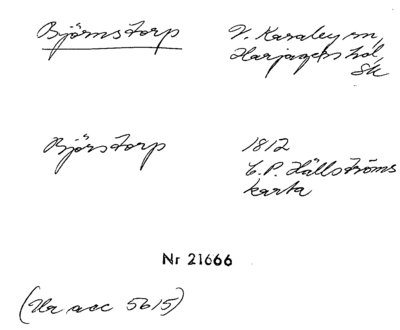 Björnstorp
V. Karaby sn,
Harjagers hd,
Sk
Björstorp
1812
C.P. Hällströms
karta
Nr 21666
(Ur acc 5615)